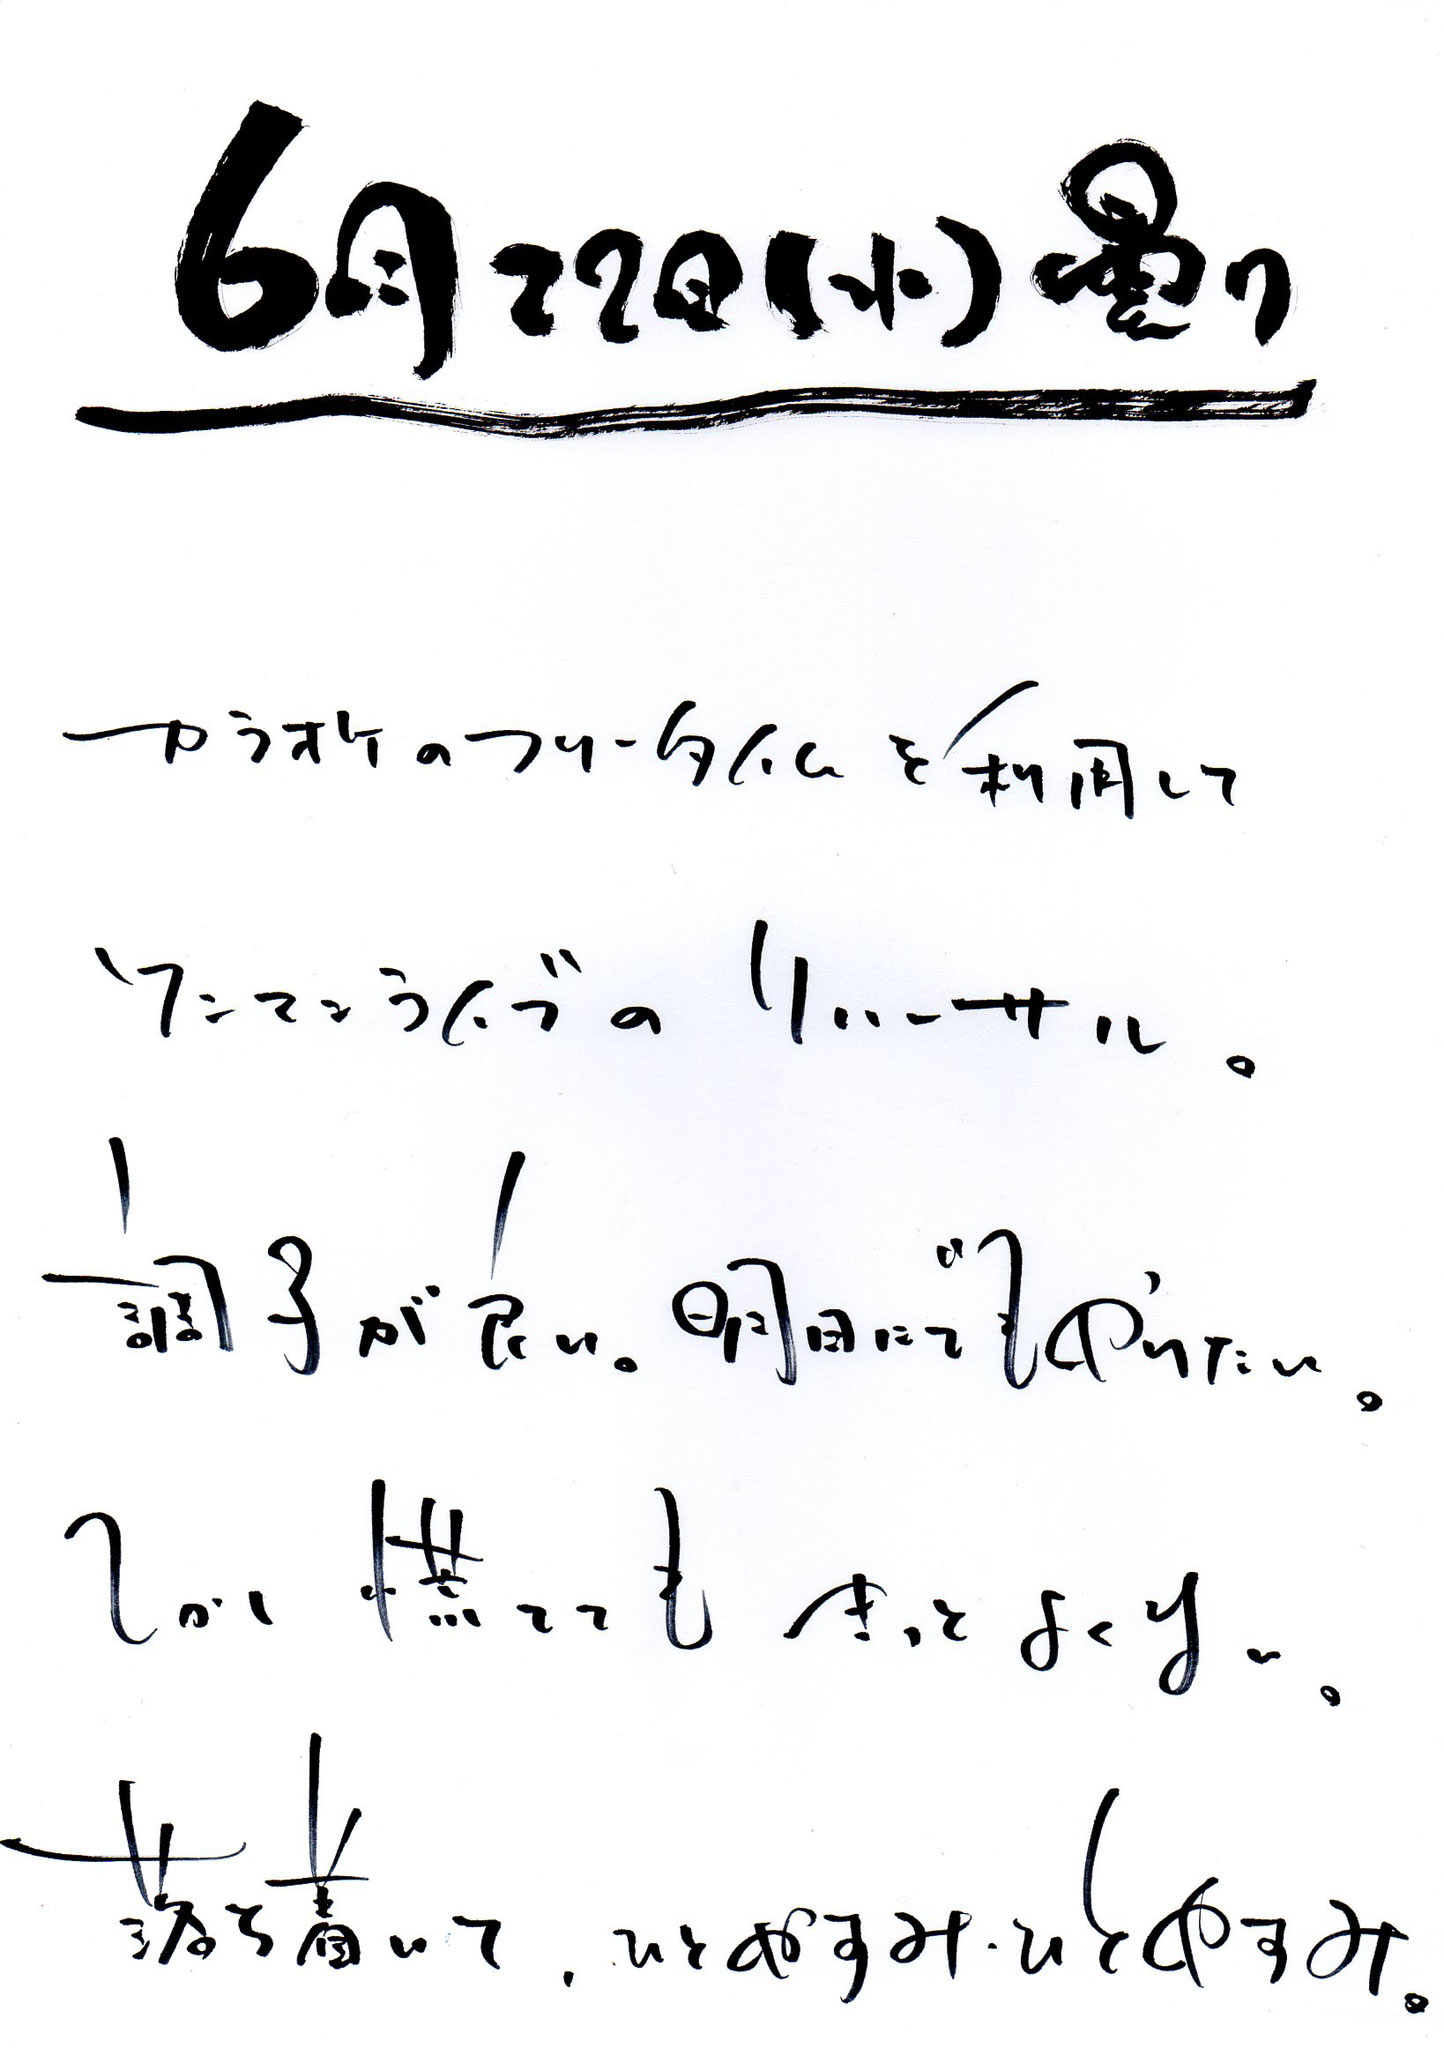 6月29日(水)曇り
カラオケのフリータイムを利用して
ワンマンライブのリハーサル。
調子が良い。明日にでもやりたい。
しかし慌ててもきっとよくない。
落ち着いて、ひとやすみ・ひとやすみ。